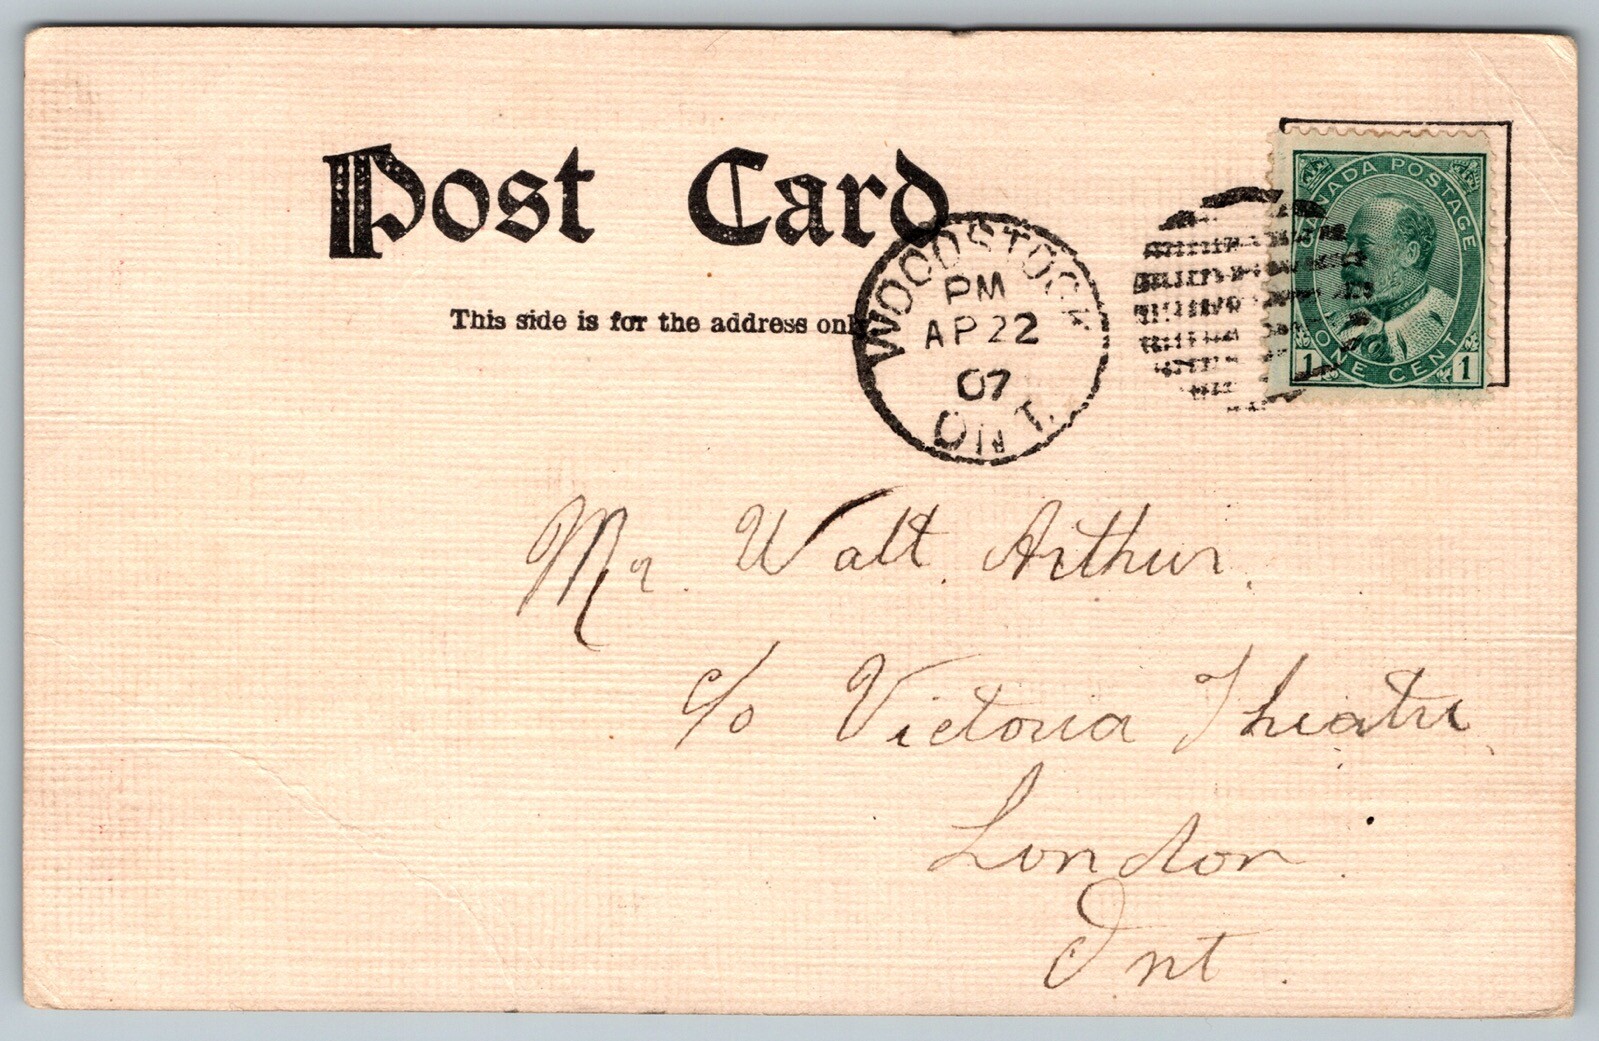 Post Card
This side is for the address only
WOODSTOCK
PM
AP 22
07
ONT
CANADA POSTAGE
ONE CENT
1 1
Mr. Walt. Arthur.
c/o Victoria Theatre
London
Ont.